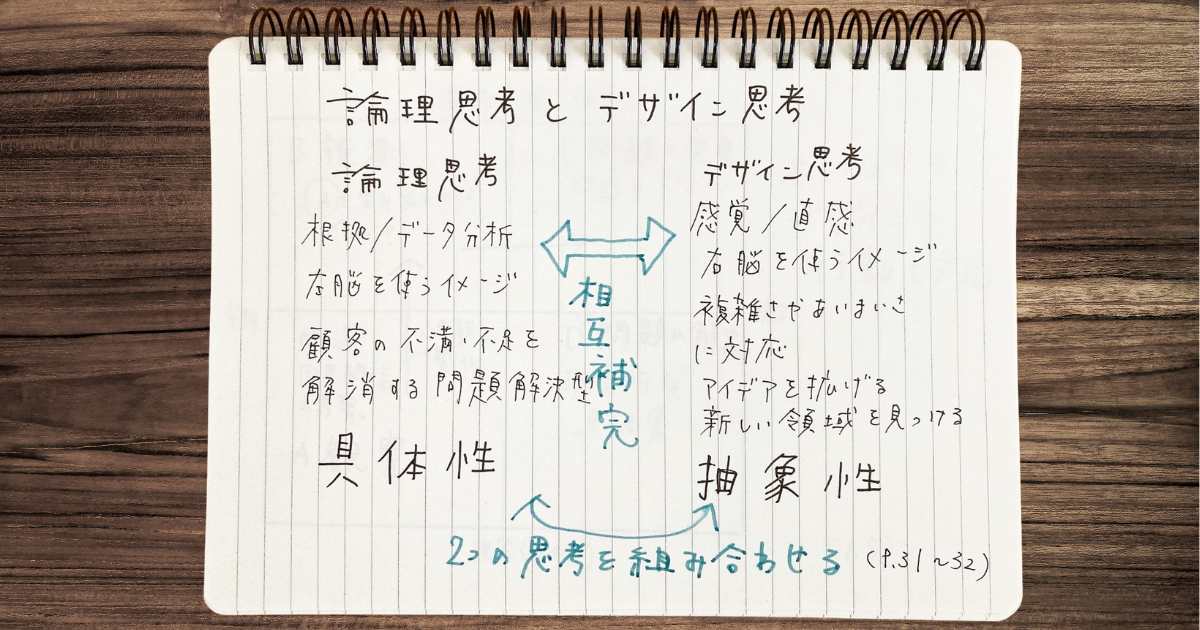 論理思考とデザイン思考
論理思考
根拠/データ分析
左脳を使うイメージ
顧客の不満・不足を
解消する問題解決型
具体性
相互補完
デザイン思考
感覚/直感
右脳を使うイメージ
複雑さやあいまいさ
に対応
アイデアを拡げる
新しい領域を見つける
抽象性
2つの思考を組み合わせる (P.31~32)